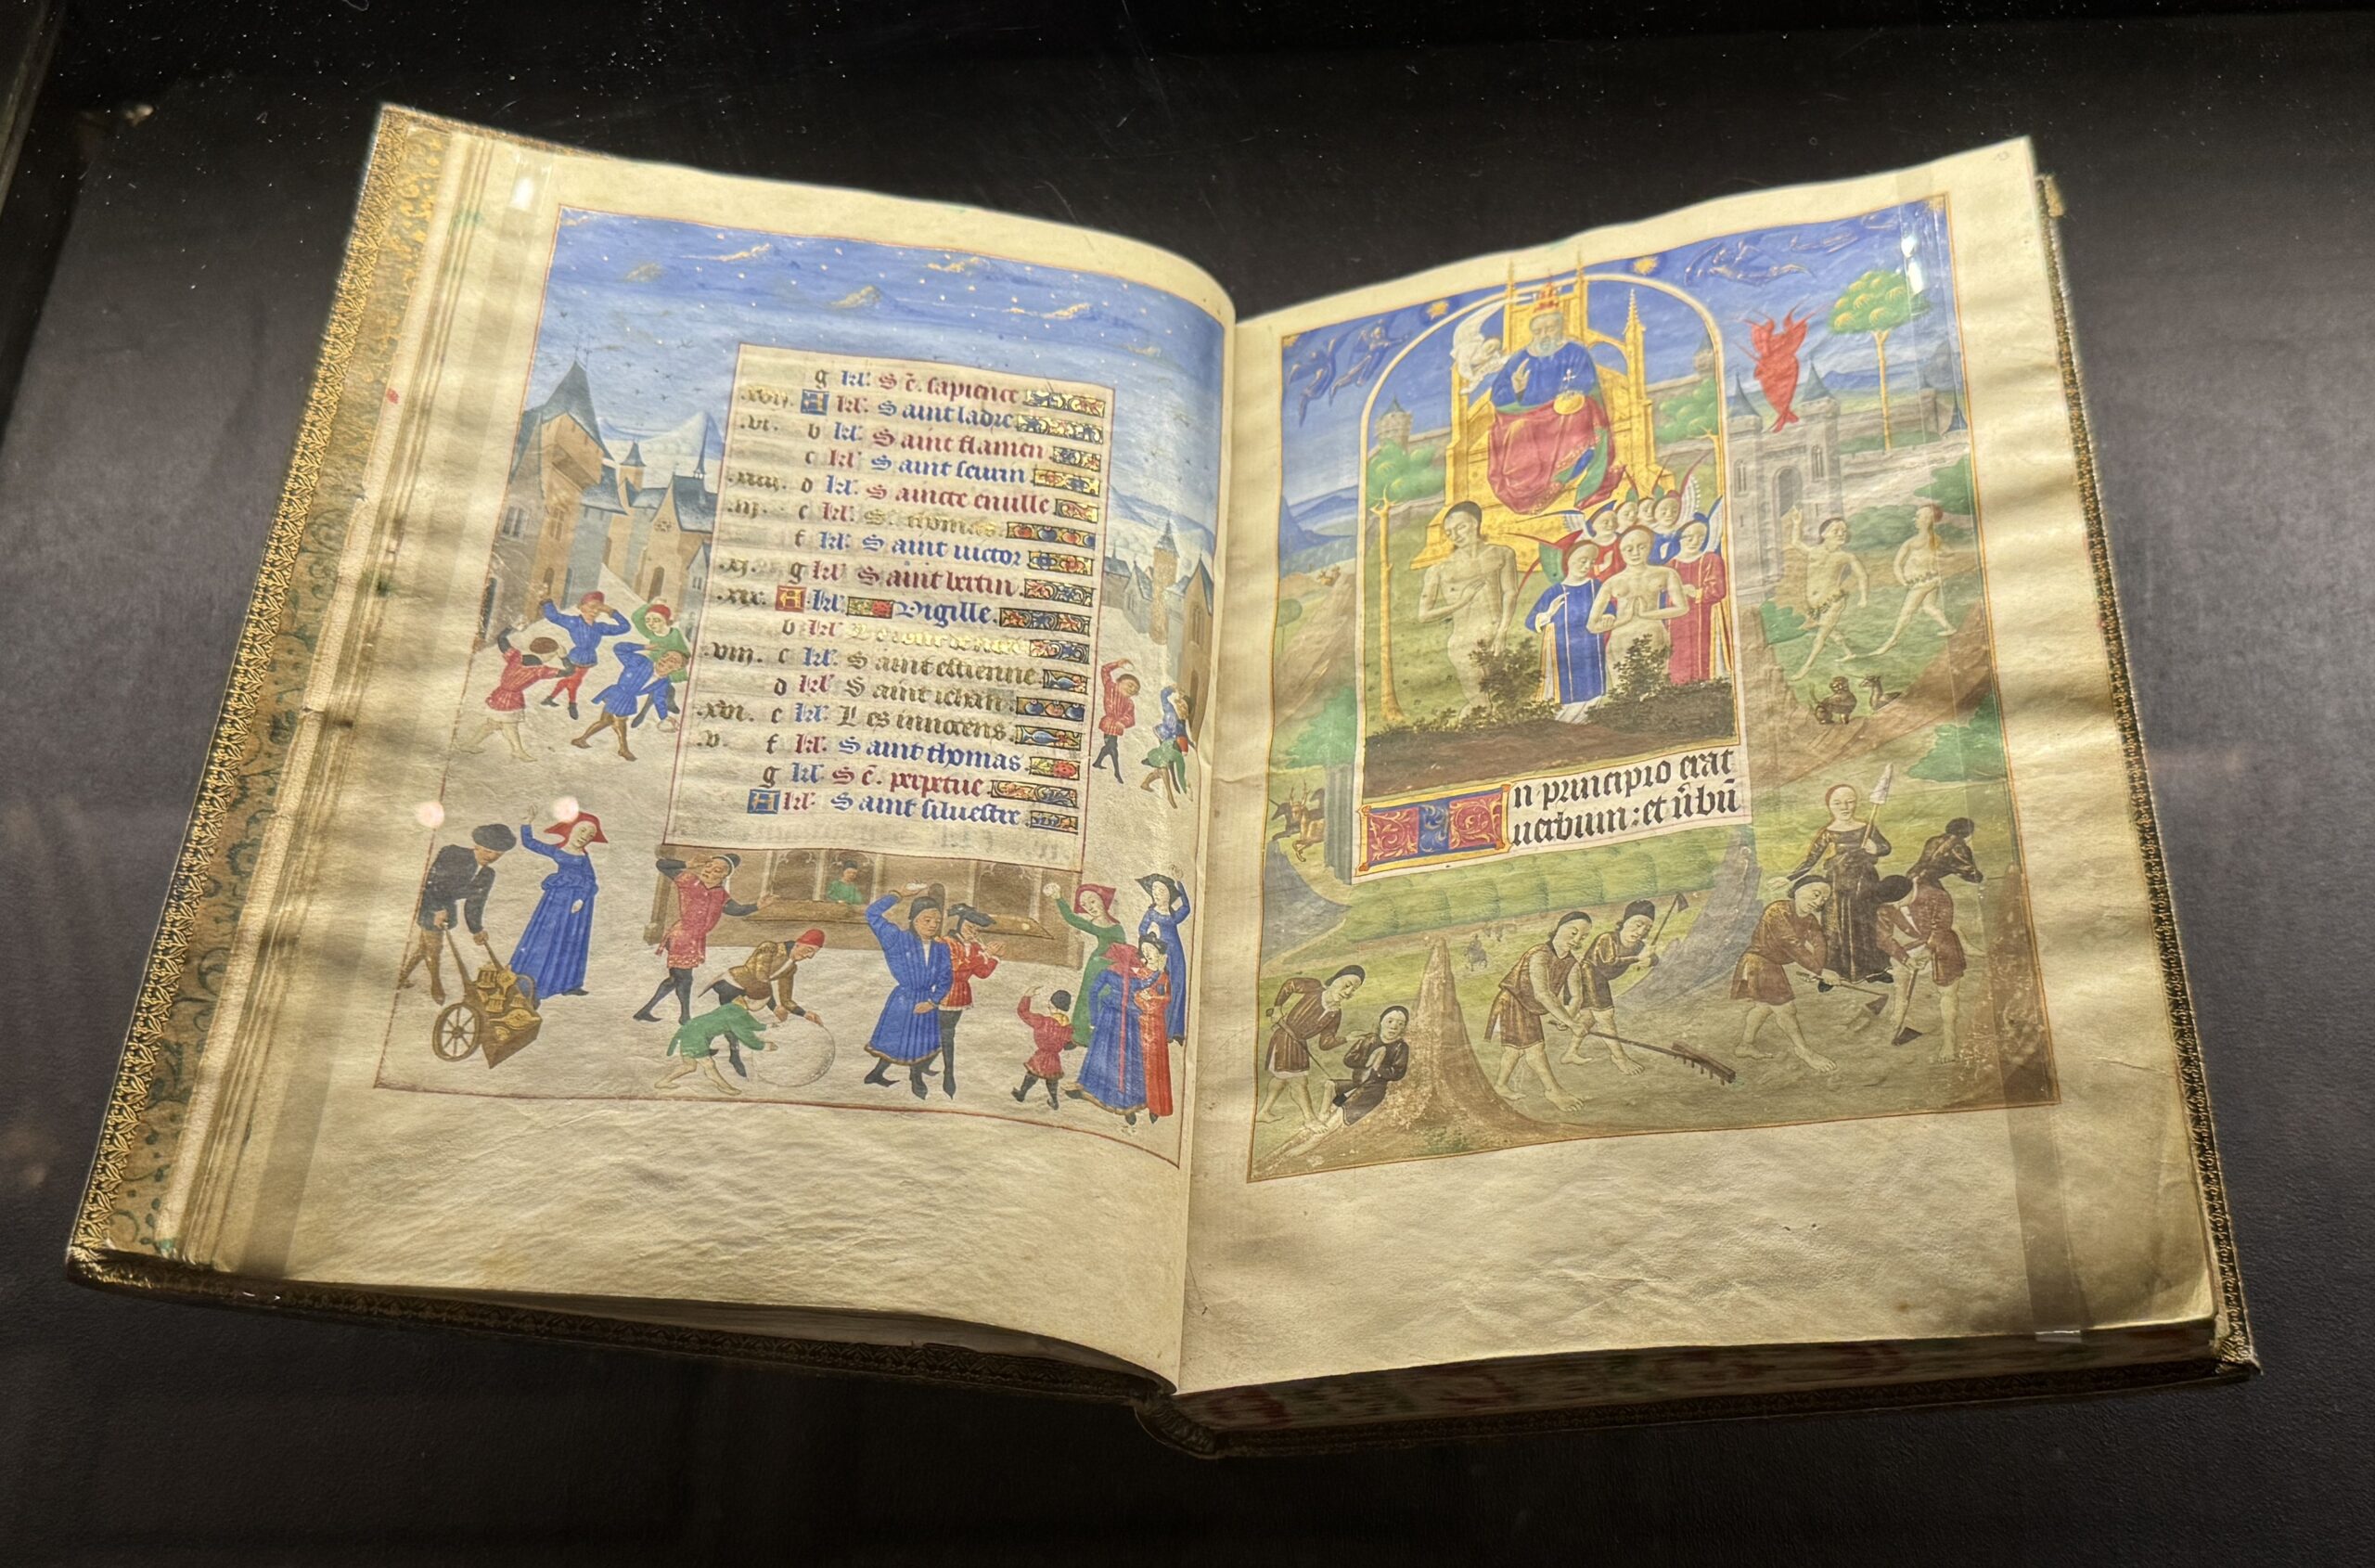 g kl' S ẽ. sapience
.xvij. A kl' Saint ladre
.vi. b kl' Saint flamen
c kl' Saint seurin
.xiiij. d kl' Saincte emille
.iij. e kl' S. thomas.
f kl' Saint uictor
.xj. g kl' Saint bertin.
.xix. A kl' Vigille.
b kl'
.viij. c kl' Saint estienne.
d kl' Saint iehan.
.xvi. e kl' Les innocens.
.v. f kl' Saint thomas.
g kl' S ẽ. perpetue
A kl' Saint siluestre.
In principio erat
uerbum: et ũbũ